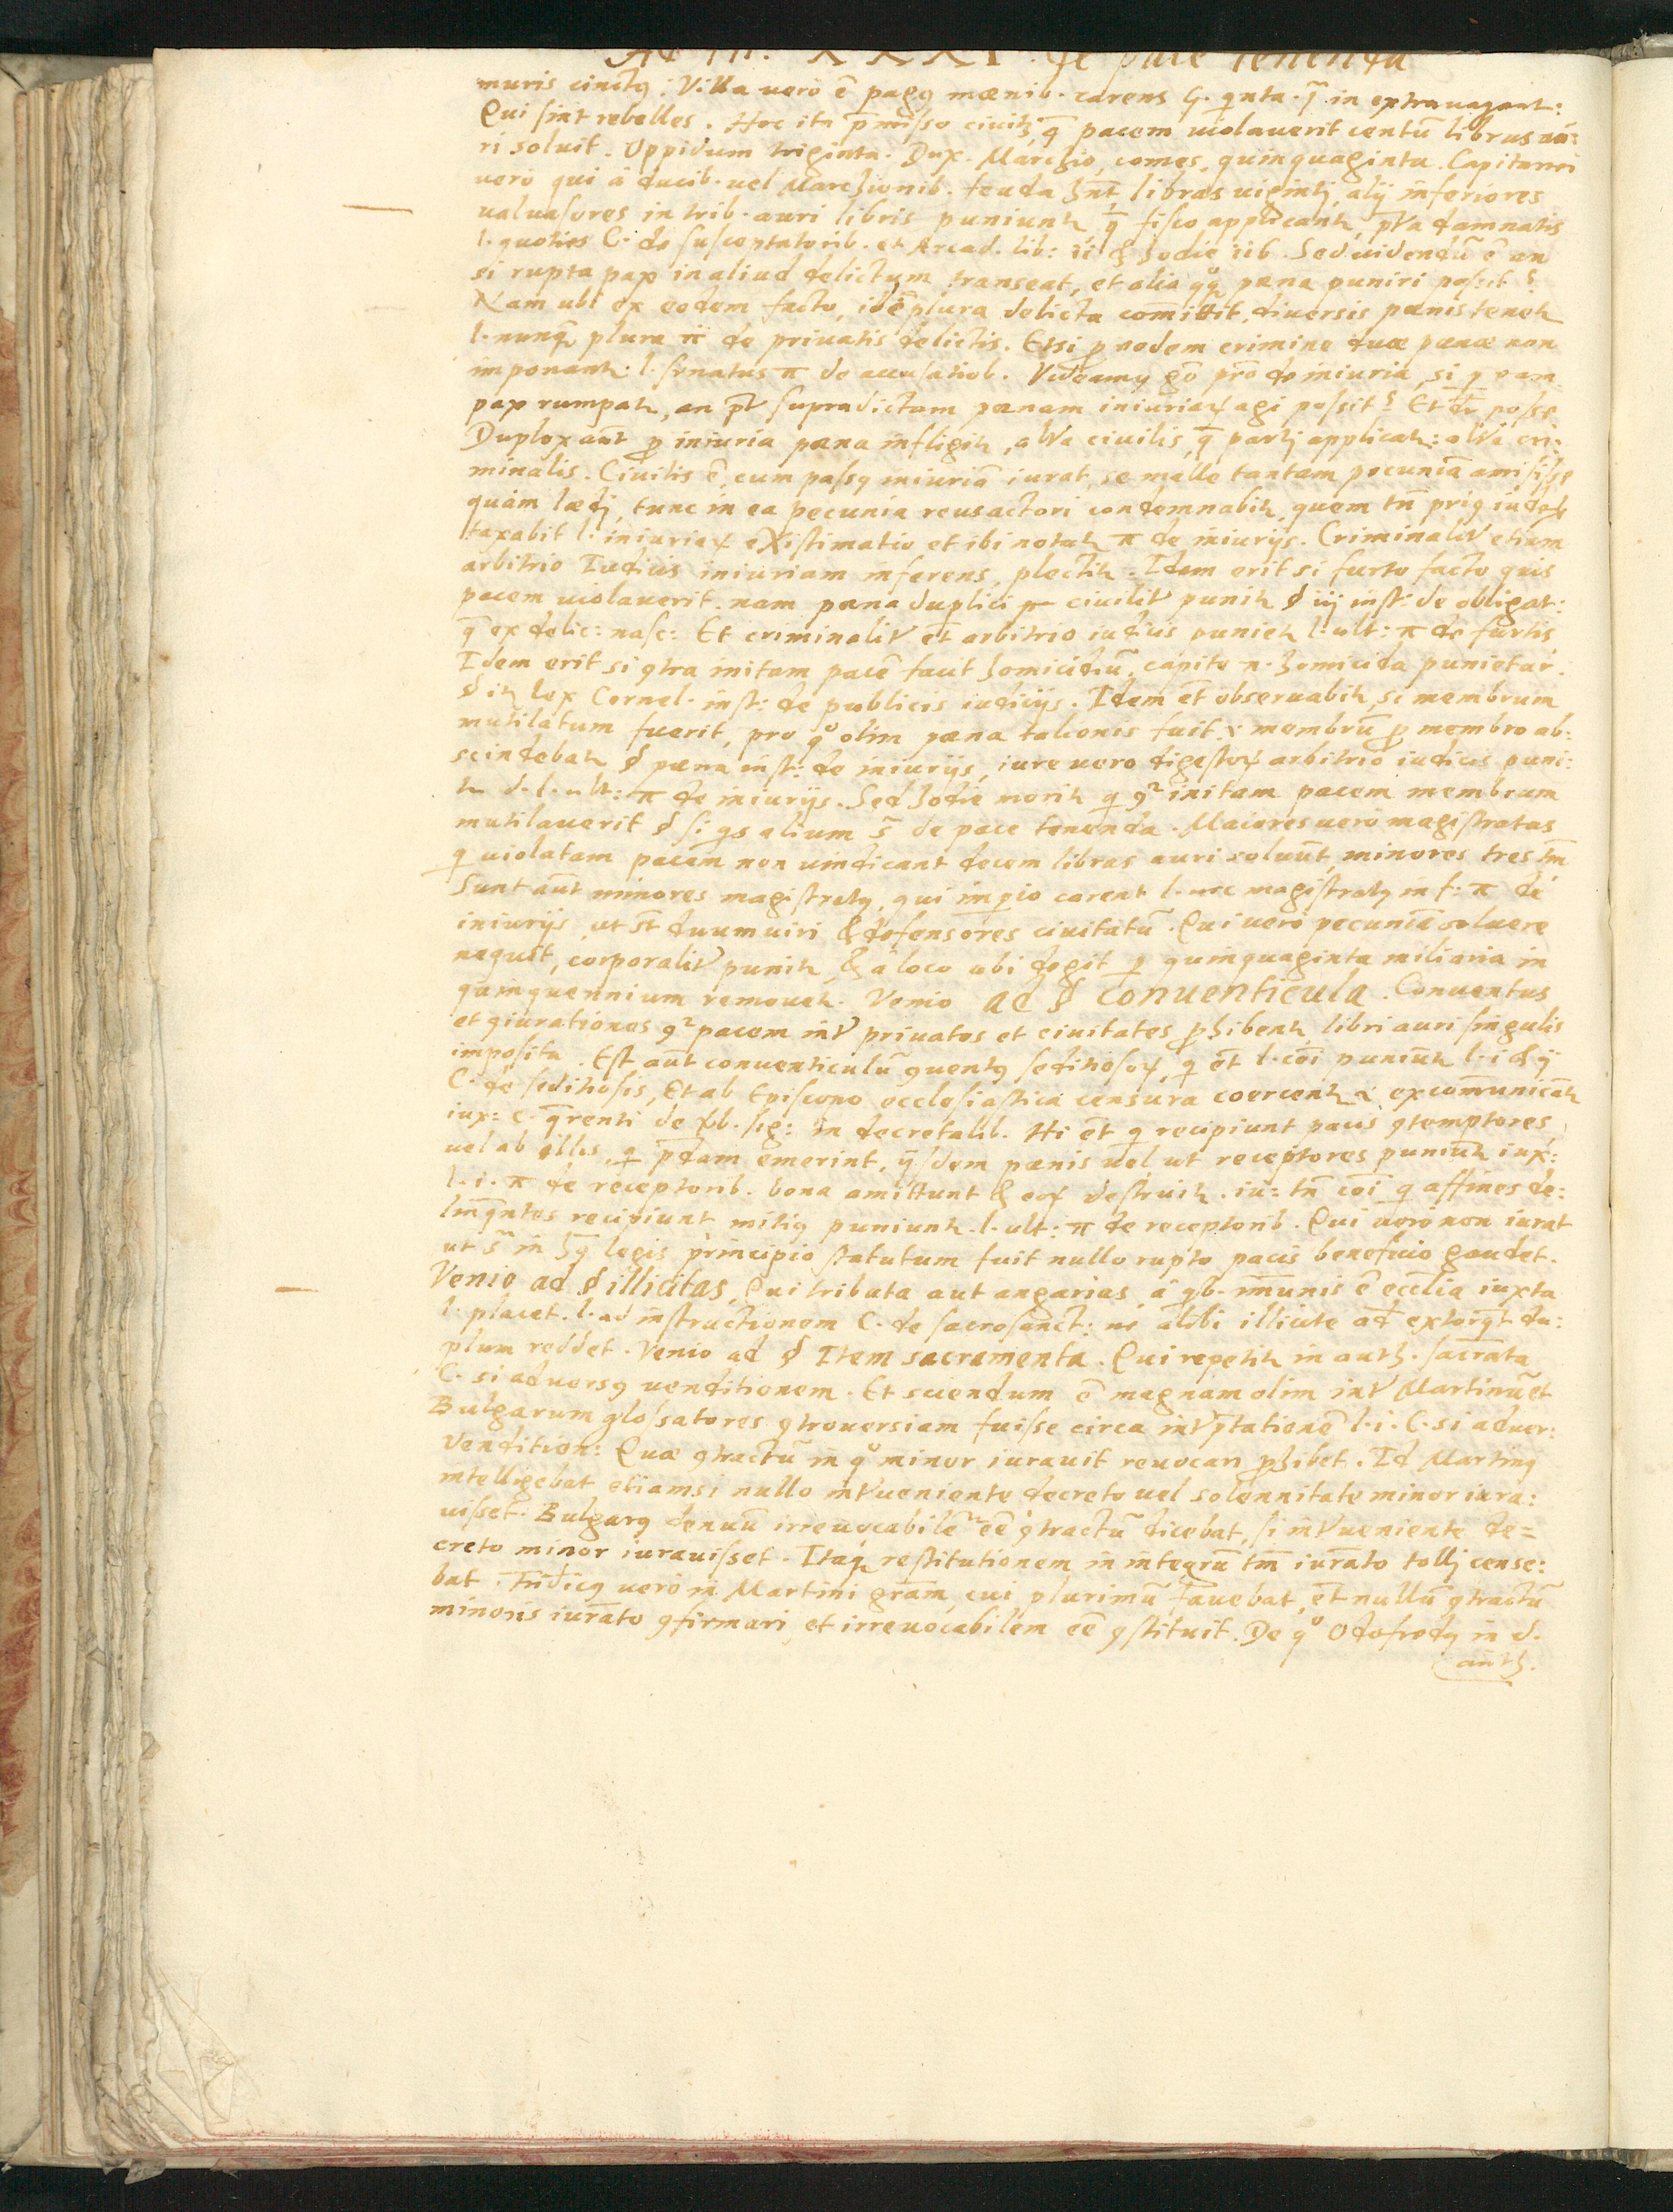 Ad tit. XXXI. de pace tenenda
muris cinctꝰ. Villa vero ē pagꝰ mœnib. carens in extrauagant:
Qui sint rebelles. Hoc ita p̄misso ciuitꝫ q̄ pacem uiolauerit centū libras au:
ri soluit. Oppidum triginta. Dux. Marchio, comes, quinquaginta. Capitanei
uero qui à ducib. uel Marchionib. feuda hn̄t, libras uigintj, alij inferiores
ualuasores in trib. auri libris puniunt᷑ q̄ fisco applicant᷑, damnatis
l. quoties C. de susceptatorib. et Arcad. lib: & hodie Sed uidendū ē an
si rupta pax in aliud delictum transeat, et alia qq̨ pœna puniri possit?
Nam ubi ex eodem facto, idē plura delicta com̄ittit, diuersis pœnis tenet᷑
l. nunq̄ plura π de priuatis delictis. Etsi ꝓ eodem crimine duæ pœnæ non
imponant᷑. l. senatus π de accusatiōb. Videamꝰ gō de iniuria, si ꝑ eam
pax rumpat᷑, an supradictam pœnam iniuriaꝝ agi possit? Et posse
Duplex aūt ꝓ iniuria pœna infligit᷑, alt͛a ciuilis, q̄ partj applicat᷑: alt͛a cri:
minalis. Ciuilis ē, cum passꝰ iniuriā iurat, se malle tantam pecuniā amisisse
quàm lædj, tunc in ea pecunia reus actori condemnabit᷑, quem tn̄ priꝰ iudex
taxabit l. iniuriaꝝ existimatio et ibi notat᷑ π de iniurijs. Criminalit͛ etiam
arbitrio Iudicis iniuriam inferens, plectit᷑. Idem erit si furto facto quis
pacem uiolauerit. nam pœna duplici ciuilit͛ punit᷑ § iij inst: de obligat:
q̄ ex delic: nasc: Et criminalit͛ et̄ arbitrio iudicis puniet᷑ l. ult: π de furtis
Idem erit si ꝯtra initam pacē facit homicidiū, capite n. homicida punietur.
§ it᷑ lex Cornel. inst: de publicis iudicijs. Idem et̄ obseruabit᷑, si membrum
mutilatum fuerit, pro qͦ olim pœna talionis fuit. & membrū ꝓ membro ab:
scindebat᷑ § pœna inst: de iniurijs, iure uero digestoꝝ arbitrio iudicis puni:
t᷑ d. l. ult: π de iniurijs. Sed hodie morit᷑ q ꝯ͛ initam pacem membrum
mutilauerit § si q̄s alium s̄ de pace tenenda. Maiores uero magistratus
q uiolatam pacem non uindicant decem libras auri soluūt, minores tres tm̄
Sunt aūt minores magistratꝰ, qui imꝑio carent l. nec magistratꝰ in f: π de
iniurijs, ut st̄ duumuiri & defensores ciuitatū. Qui uero pecuniā soluere
nequit, corporalit͛ punit᷑, & à loco ubi degit ꝑ quinquaginta miliaria in
quinquennium remouet᷑. Venio ad § conuenticula. Conuentus
et ꝯiurationes ꝯ͛ pacem int͛ priuatos et ciuitates ꝓhibent᷑ libri auri singulis
imposita. Est aūt conuenticulū ꝯuentꝰ seditiosoꝝ, q et̄ l. cōi puniūt᷑ l. i & ij
C. de seditiosis, Et ab Episcopo ecclesiastica censura coercent᷑ & excom̄unicāt᷑
iux: c. q̄renti de ꝟb. sig: in decretalib. Hi et̄ q recipiunt pacis ꝯtemptores,
uel ab illis, q p̄dam emerint, ijsdem pœnis uel, ut receptores puniūt᷑ iux:
l. i. π de receptorib. bona amittunt & eoꝝ destruit᷑. tn̄ q affines de:
linq̄ntes recipiunt mitiꝰ puniunt᷑. l. ult: π de receptorib. Qui uero non iurat
ut s̄ in hꝰ legis principio statutum fuit nullo rupto pacis beneficio gaudet.
Venio ad § illicitas, Qui tributa aut angarias, à qb. im̄unis ē eccl̄ia iuxta
l. placet. l. ad instructionem C. de sacrosanct: uel alibi illicite extorq̄t du:
plum reddet. Venio ad § Item sacramenta. Qui repetit᷑ in auth. sacrāta
C. si aduersꝰ uenditionem. Et sciendum ē magnam olim int͛ Martinū et
Bulgarum glossatores ꝯtrouersiam fuisse circa int͛p̄tationē l. i. C. si aduer:
Vendition: Quæ ꝯtractū in qͦ minor iurauit reuocari ꝓhibet. Id Martinꝰ
intelligebat etiamsi nullo int͛ueniente decreto uel solennitate minor iura:
uisset. Bulgarꝰ denuū irreuocabilē eē ꝯtractū dicebat, si int͛ueniente de=
creto minor iurauisset. Itaq̨ restitutionem in integrū tm̄ iurāto tollj cense:
bat. Fridicꝰ uero in Martini grām, cui plurimū fauebat, et̄ nullū ꝯtractū
minoris iurāto ꝯfirmari, et irreuocabilem eē ꝯstituit. De qͦ Odofredꝰ in d.
auth.